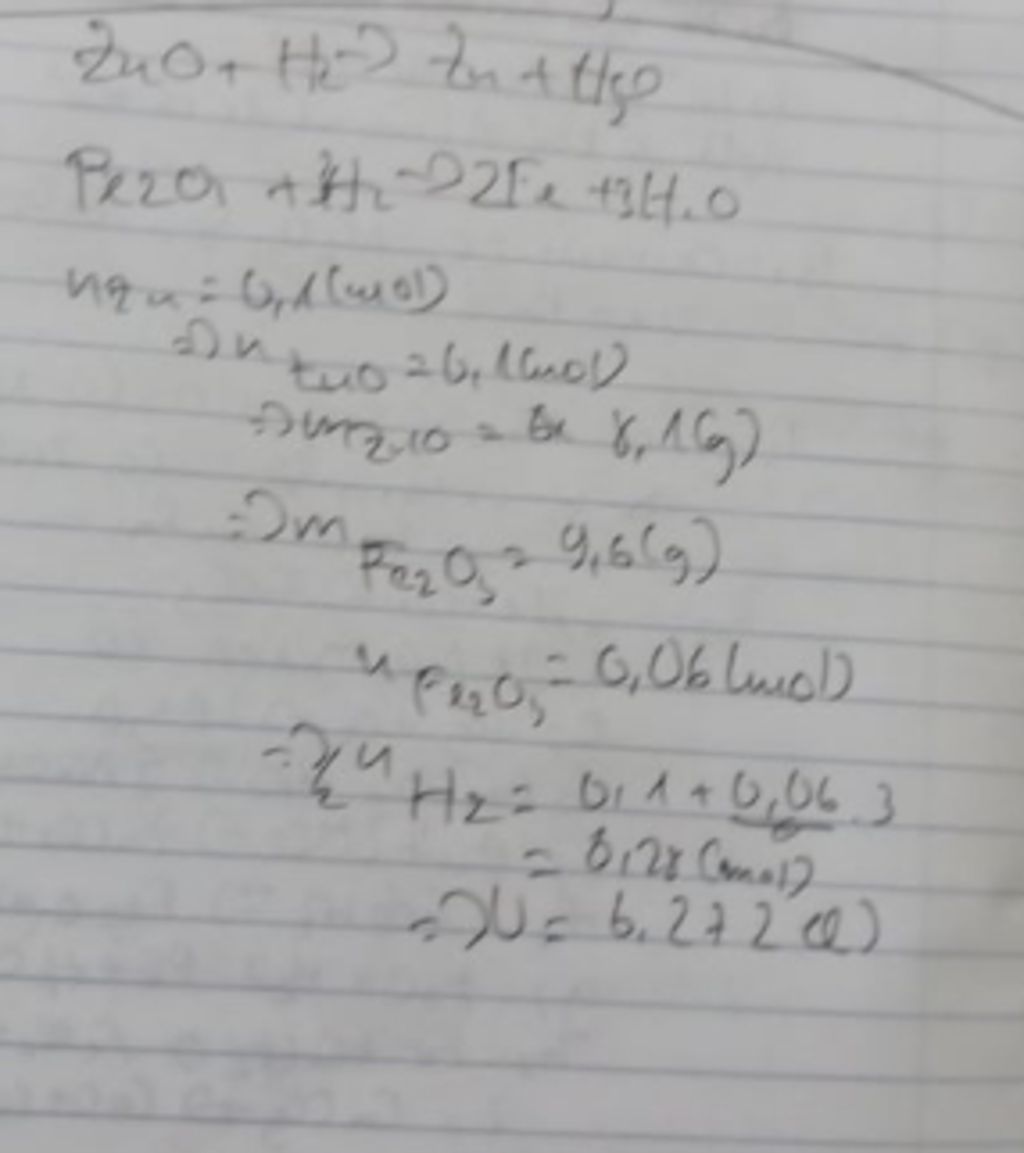 ZnO + H2 -> Zn + H2O
Fe2O3 + 3H2 -> 2Fe + 3H2O
nZn = 0,1(mol)
=> n ZnO = 0,1(mol)
=> mZnO = 8,1(g)
=> m Fe2O3 = 9,6(g)
n Fe2O3 = 0,06(mol)
=> n H2 = 0,1 + 0,06.3
= 0,28(mol)
=> V = 6,272(l)